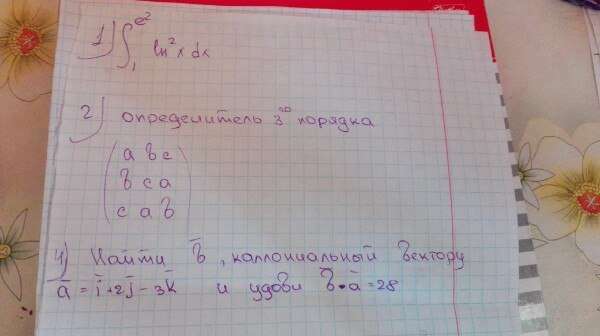 1) ∫₁^{e²} ln²x dx
2) определитель 3го порядка
(a b c
b c a
c a b)
4) Найти b̄, каллониальный вектору
ā = ī + 2j̄ - 3k̄ и удовл b̄•ā = 28